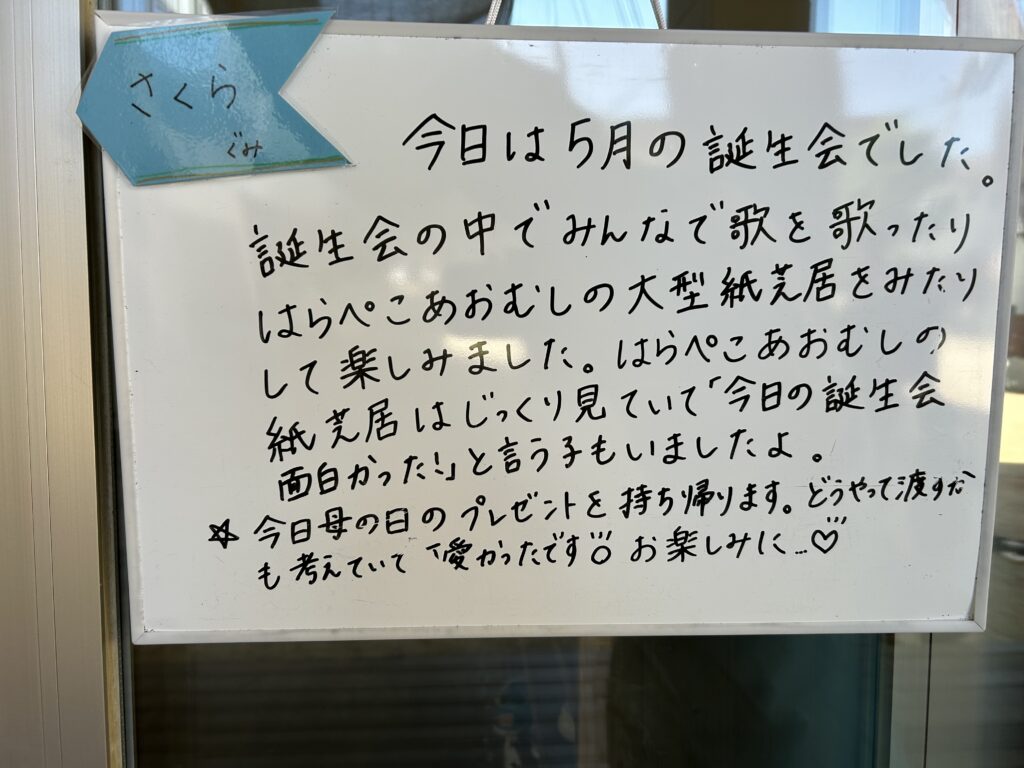 さくら
ぐみ
今日は5月の誕生会でした。
誕生会の中でみんなで歌を歌ったり
はらぺこあおむしの大型紙芝居をみたり
して楽しみました。はらぺこあおむしの
紙芝居はじっくり見ていて「今日の誕生会
面白かった!」と言う子もいましたよ。
☆今日母の日のプレゼントを持ち帰ります。どうやって渡すか
も考えていて可愛かったです お楽しみに…♡